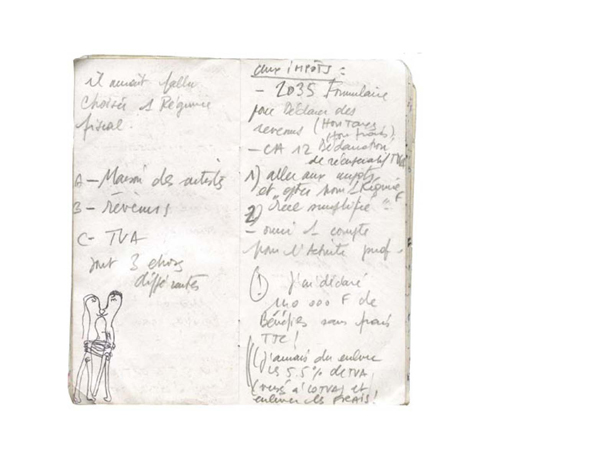 il aurait fallu
choisir 1 Régime
fiscal.
A - Maison des artistes
B - revenus
C - TVA
sont 3 choses
différentes
aux IMPOTS :
- 2035 Formulaire
pour Déclarer des
revenus (Hors Taxes
Hors frais)
- CA 12 Déclaration
de TVA
1) aller aux impots
et opter pour 1 Régime
F
2) simplifié
- ouvrir 1 compte
pour l'Activité prof -
(!) J'ai déclaré
110 000 F de
Bénéfices sans frais
TTC !
(j'aurais du enlever
les 5.5% de TVA
versé à et
enlever les FRAIS !